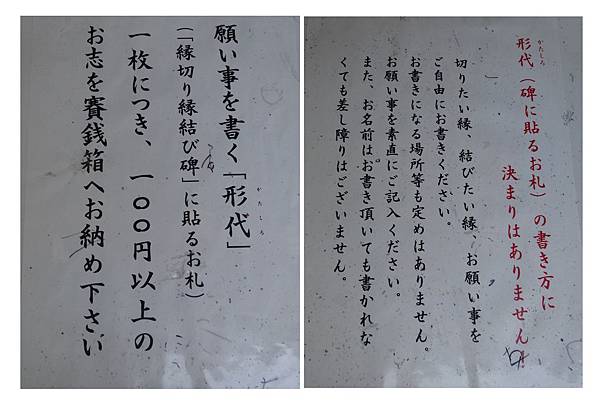 願い事を書く「形代」
かたしろ
(「縁切り縁結び碑」に貼るお札)
一枚につき、一〇〇円以上の
お志を賽銭箱へお納め下さい
かたしろ
形代(碑に貼るお札)の書き方に
決まりはありません!
切りたい縁、結びたい縁、お願い事を
ご自由にお書きください。
お書きになる場所等も定めはありません。
お願い事を素直にご記入ください。
また、お名前はお書き頂いても書かれな
くても差し障りはございません。